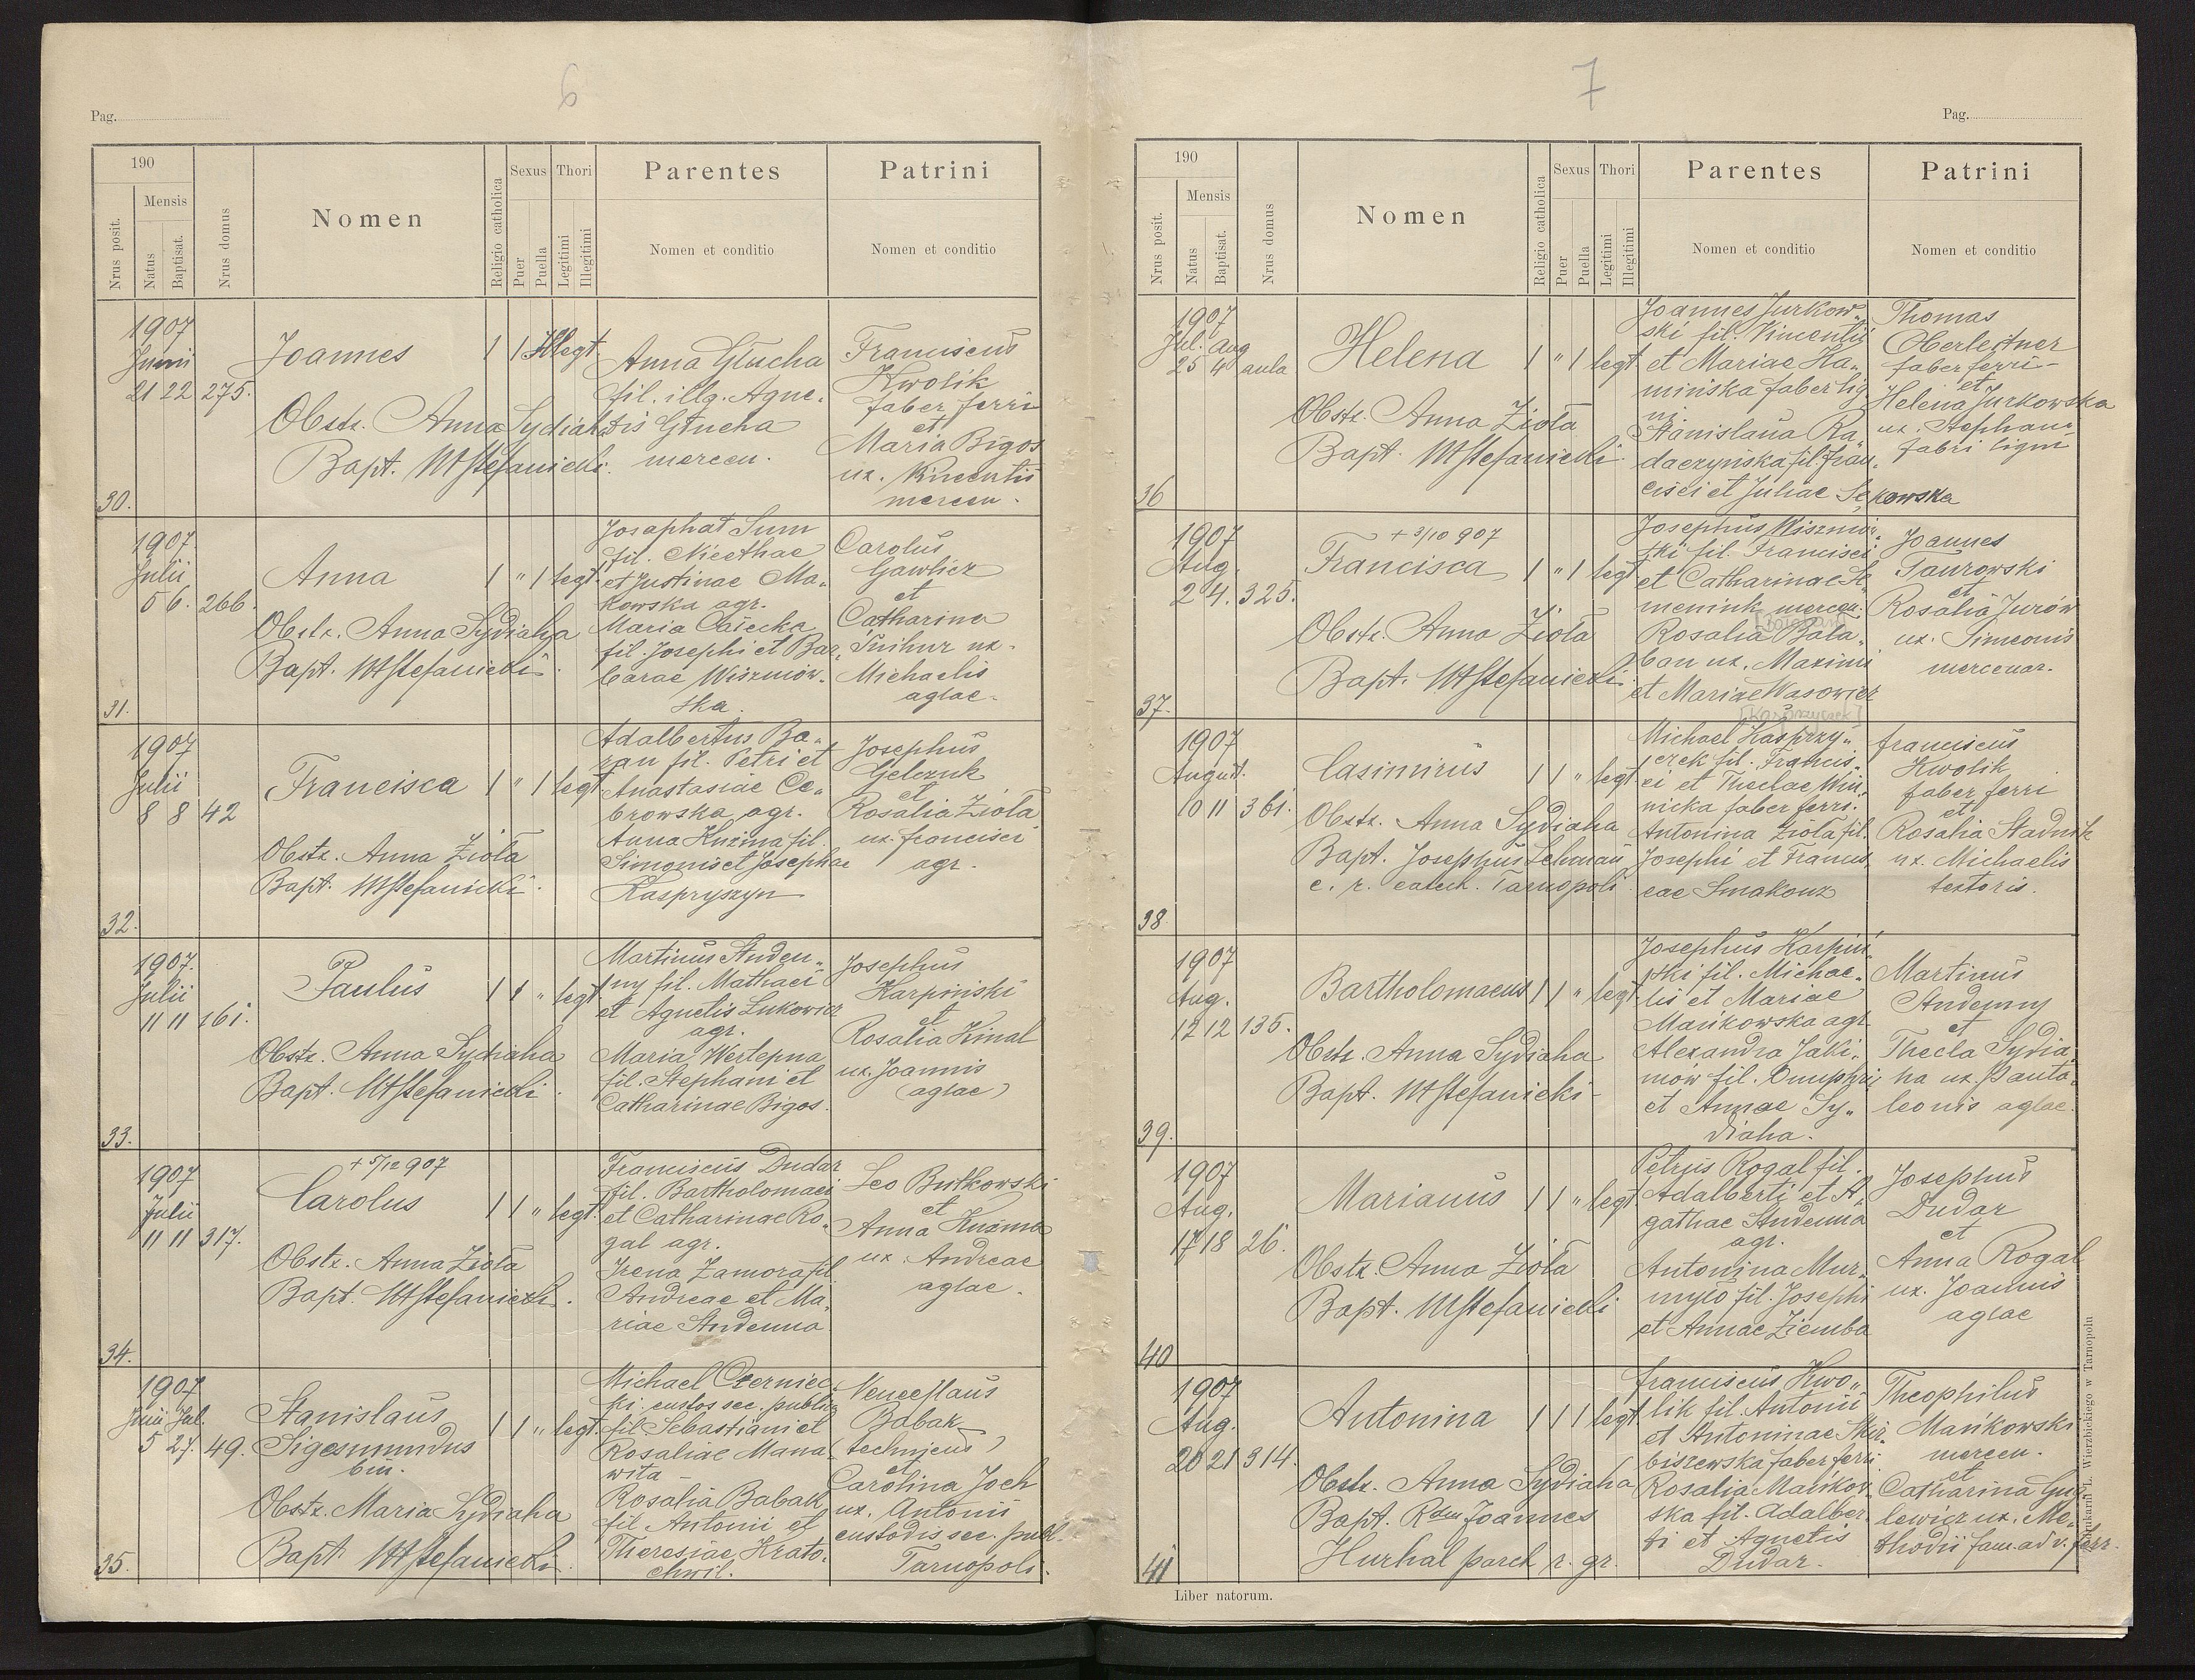 6
Pag.
190
Mensis
Nrus posit.
Natus
Baptisat.
Nrus domus
Nomen
Religio catholica
Sexus
Puer
Puella
Thori
Legitimi
Illegitimi
Parentes
Nomen et conditio
Patrini
Nomen et conditio
30.
1907
Junii
21 22 275.
Joannes
Obstr. Anna Sydiaha
Bapt. WStefanicki.
Anna Głucha
fil. illg. Agne-
tis Głucha
mercen.
Franciscus
Kwolik
faber ferri
et
Maria Bigos
ux. Vincentii
mercen.
31.
1907
Julii
5 6. 266.
Anna
1 " 1 legt.
Obstr. Anna Sydiaha
Bapt. WStefanicki.
Josaphat Sum
fil. Nicethae
et Justinae Ma-
kowska agr.
Maria Całecka
fil. Josephi et Bar-
barae Wiszniow-
ska.
Carolus
Gawlicz
et
Catharina
Snihur ux.
Michaelis
aglae.
32.
1907
Julii
8 8 42
Francisca
1 " 1 legt.
Obstr. Anna Zioła
Bapt. WStefanicki.
Adalbertus Ba-
ran fil. Petri et
Anastasiae Ce-
browska agr.
Anna Kuźma fil.
Simonis et Josephae
Kaspryszyn
Josephus
Gelczuk
et
Rosalia Zioła
ux. Francisci
agr.
33.
1907.
Julii
11 11 161.
Paulus
1 1 " legt
Obstr. Anna Sydiaha
Bapt. WStefanicki.
Martinus Studen-
ny fil. Mathaei
et Agnetis Lukowicz
agr.
Maria Wertepna
fil. Stephani et
Catharinae Bigos.
Josephus
Karpiński
et
Rosalia Kinal
ux. Joannis
(aglae)
34.
1907
Julii
11 11 317.
+ 5/12 907
Carolus
1 1 " legt.
Obstr. Anna Zioła
Bapt. WStefanicki.
Franciscus Dudar
fil. Bartholomaei
et Catharinae Ro-
gal agr.
Irena Zamora fil.
Andreae et Ma-
riae Studenna
Leo Butkowski
et
Anna Kuźma
ux. Andreae
aglae.
35.
1907
Junii Jul.
5 27. 49.
Stanislaus
Sigesmundus
bin.
1 1 " legt.
Obstr. Maria Sydiaha
Bapt WStefanicki
Michael Czerniec-
ki custos sec. public.
fil Sebastiani et
Rosaliae Mana-
wita
Rosalia Babak
fil Antonii et
Theresiae Krato-
chwil.
Venceslaus
Babak
(technicus)
et
Carolina Joch
ux. Antonii
custodis sec. publ.
Tarnopoli.
7
Pag.
190
Mensis
Nrus posit.
Natus
Baptisat.
Nrus domus
Nomen
Religio catholica
Sexus
Puer
Puella
Thori
Legitimi
Illegitimi
Parentes
Nomen et conditio
Patrini
Nomen et conditio
36
1907
Jul. Aug
25 4 aula
Helena
1 " 1 legt
Obstr. Anna Zioła
Bapt. WStefanicki
Joannes Jurkow-
ski fil. Vincentii
et Mariae Ka-
mińska faber lig-
ni.
Stanislaua Ra-
daczyńska fil. Fran-
cisci et Juliae Sękowska
Thomas
Oberleitner
faber ferri
et
Helena Jurkowska
ux. Stephani
fabri ligni
37.
1907
Aug.
2 4. 325.
+ 3/10 907
Francisca
1 " 1 legt
Obstr. Anna Zioła
Bapt. WStefanicki.
Josephus Wiszniow-
ski fil. Francisci
et Catharinae Se-
menink mercen.
Rosalia Bała-
ban ux. Maximi
et Mariae Wasowicz
Joannes
Taurowski
et
Rosalia Jurów
ux. Simeonis
mercenar.
38
1907
August.
10 11 361.
Casimirus
1 1 " legt.
Obstr. Anna Sydiaha
Bapt. Josephus Lehman
c. r. catech. Tarnopoli.
[Kasprzyczek]
Michael Kasprzy-
czek fil. Francis-
ci et Theclae Win-
nicka faber ferri.
Antonina Zioła fil.
Josephi et Francis-
cae Smakouz
Franciscus
Kwolik
faber ferri
et
Rosalia Stadnik
ux. Michaelis
textoris.
39.
1907
Aug.
12 12 135.
Bartholomaeus
1 1 " legt
Obstr. Anna Sydiaha
Bapt. WStefanicki
Josephus Karpiń-
ski fil. Michae-
lis et Mariae
Mańkowska agr.
Alexandra Jaki-
mów fil. Onuphrii
et Annae Sy-
diaha.
Martinus
Studenny
et
Thecla Sydia-
ha ux. Panta-
leonis aglae.
40
1907
Aug.
17 18 26.
Marianus
1 1 " legt
Obstr. Anna Zioła
Bapt. WStefanicki
Petrus Rogal fil.
Adalberti et A-
gathae Studenna
agr.
Antonina Mur-
myło fil. Josephi
et Annae Ziemba
Josephus
Dudar
et
Anna Rogal
ux. Joannis
aglae
41
1907
Aug.
20 21 314.
Antonina
1 1 1 legt
Obstr. Anna Sydiaha
Bapt. Joannes
Hurhal paroch r. gr.
Franciscus Kwo-
lik fil. Antonii
et Antoninae Skir-
biszewska faber ferri.
Rosalia Mańkow-
ska fil. Adalber-
ti et Agnetis
Dudar.
Theophilus
Mańkowski
mercen.
et
Catharina Gug-
lewicz ux. Me-
thodii fam. ad v. ferr.
Liber natorum.
Drukarnia L. Wierzbickiego w Tarnopolu